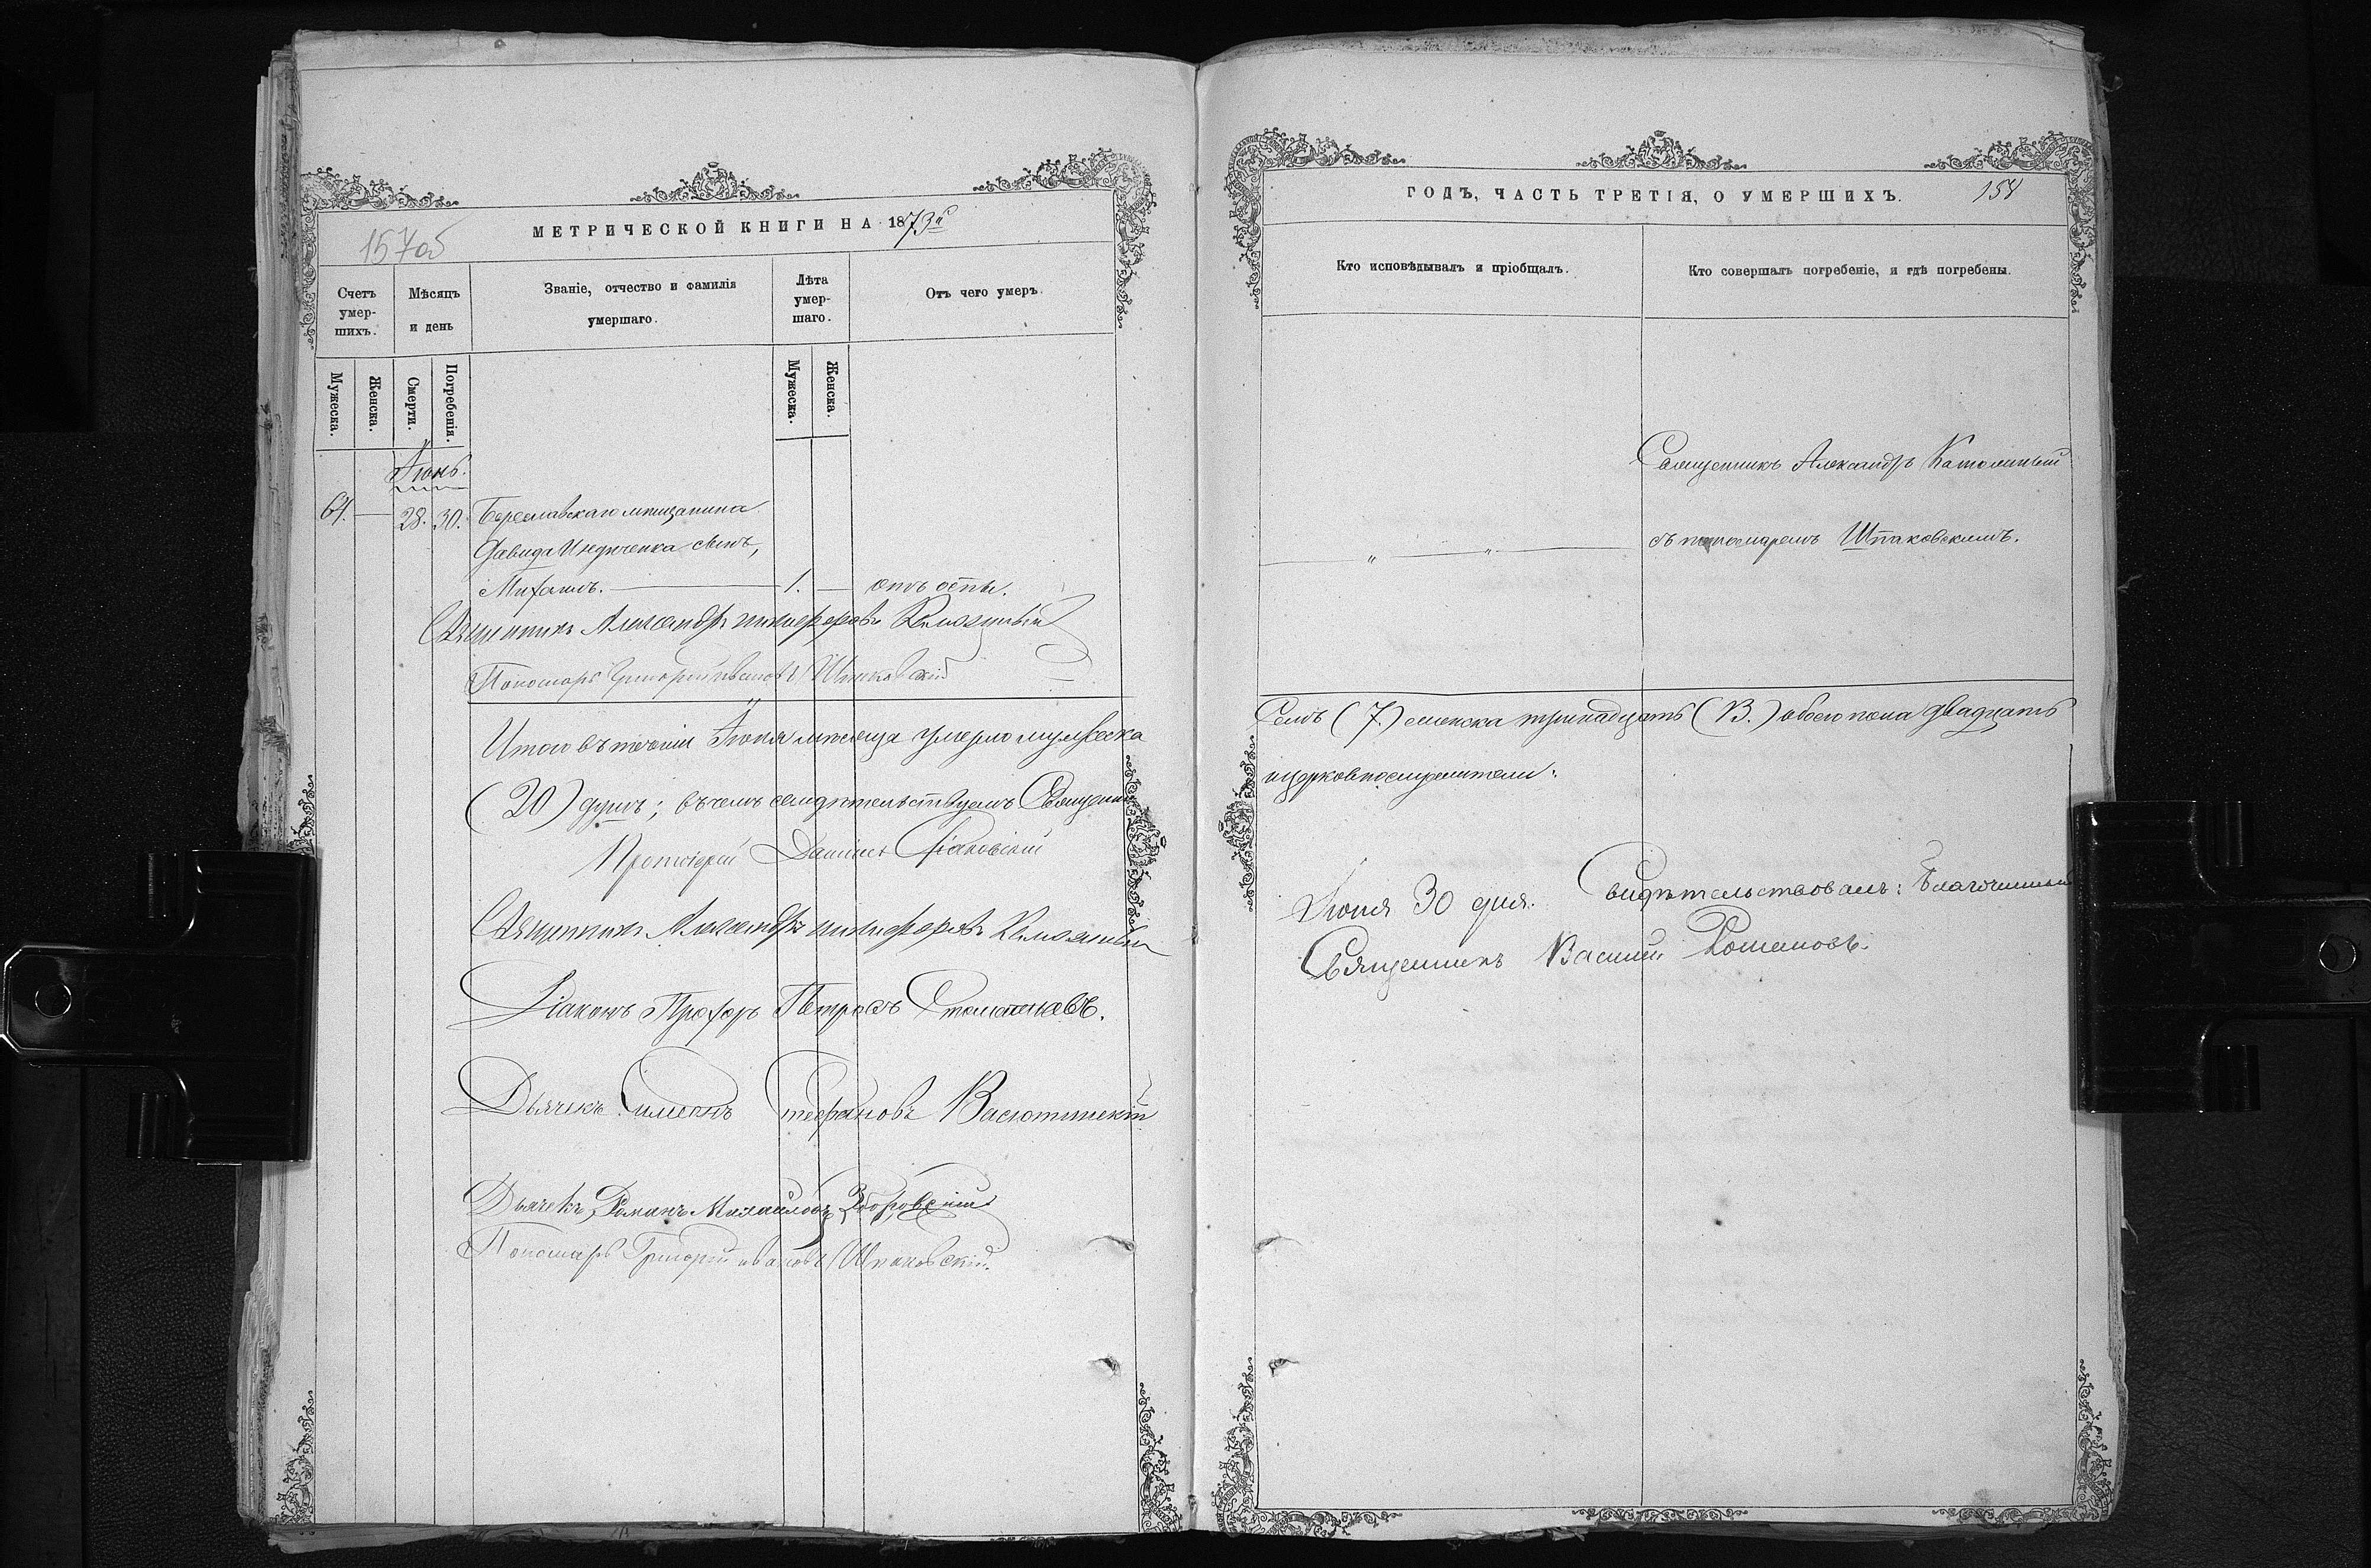 МЕТРИЧЕСКОЙ КНИГИ НА 1873й
157об
Счетъ умер-шихъ.
Мѣсяцъ и день
Званіе, отчество и фамилія умершаго.
Лѣта умер-шаго.
Отъ чего умеръ.
Мужеска.
Женска.
Смерти.
Погребенія.
Мужеска.
Женска.
Іюнь.
64. — 28. 30. Береславскаго мѣщанина
Давида Индиченка сынъ,
Михаилъ. — 1. — отъ оспы.
Священникъ Александръ Никифоровъ
Пономарь Григорій Ивановъ Шпаковскій
Итого въ теченіи Іюня мѣсяца умерло мужеска
(20) душъ; въ чемъ свидѣтельствуемъ Священно
Протоіерей Даніилъ
Священникъ Александръ Никифоровъ
Діаконъ Прохоръ Петровъ
Дьячекъ Симеонъ Стефановъ Васютинскій
Дьячекъ, Романъ Михайловъ Зборовскій
Пономарь Григорій Ивановъ Шпаковскій.
ГОДЪ, ЧАСТЬ ТРЕТІЯ, О УМЕРШИХЪ.
158
Кто исповѣдывалъ и пріобщалъ.
Кто совершалъ погребеніе, и гдѣ погребены.
Священникъ Александръ
— „ — „ — съ пономаремъ Шпаковскимъ.
Семь (7.) женска тринадцать (13.) обоего пола двадцать
церковнослужители:
Іюня 30 дня. Свидѣтельствовалъ: Благочинный
Священникъ Василій Романовъ.